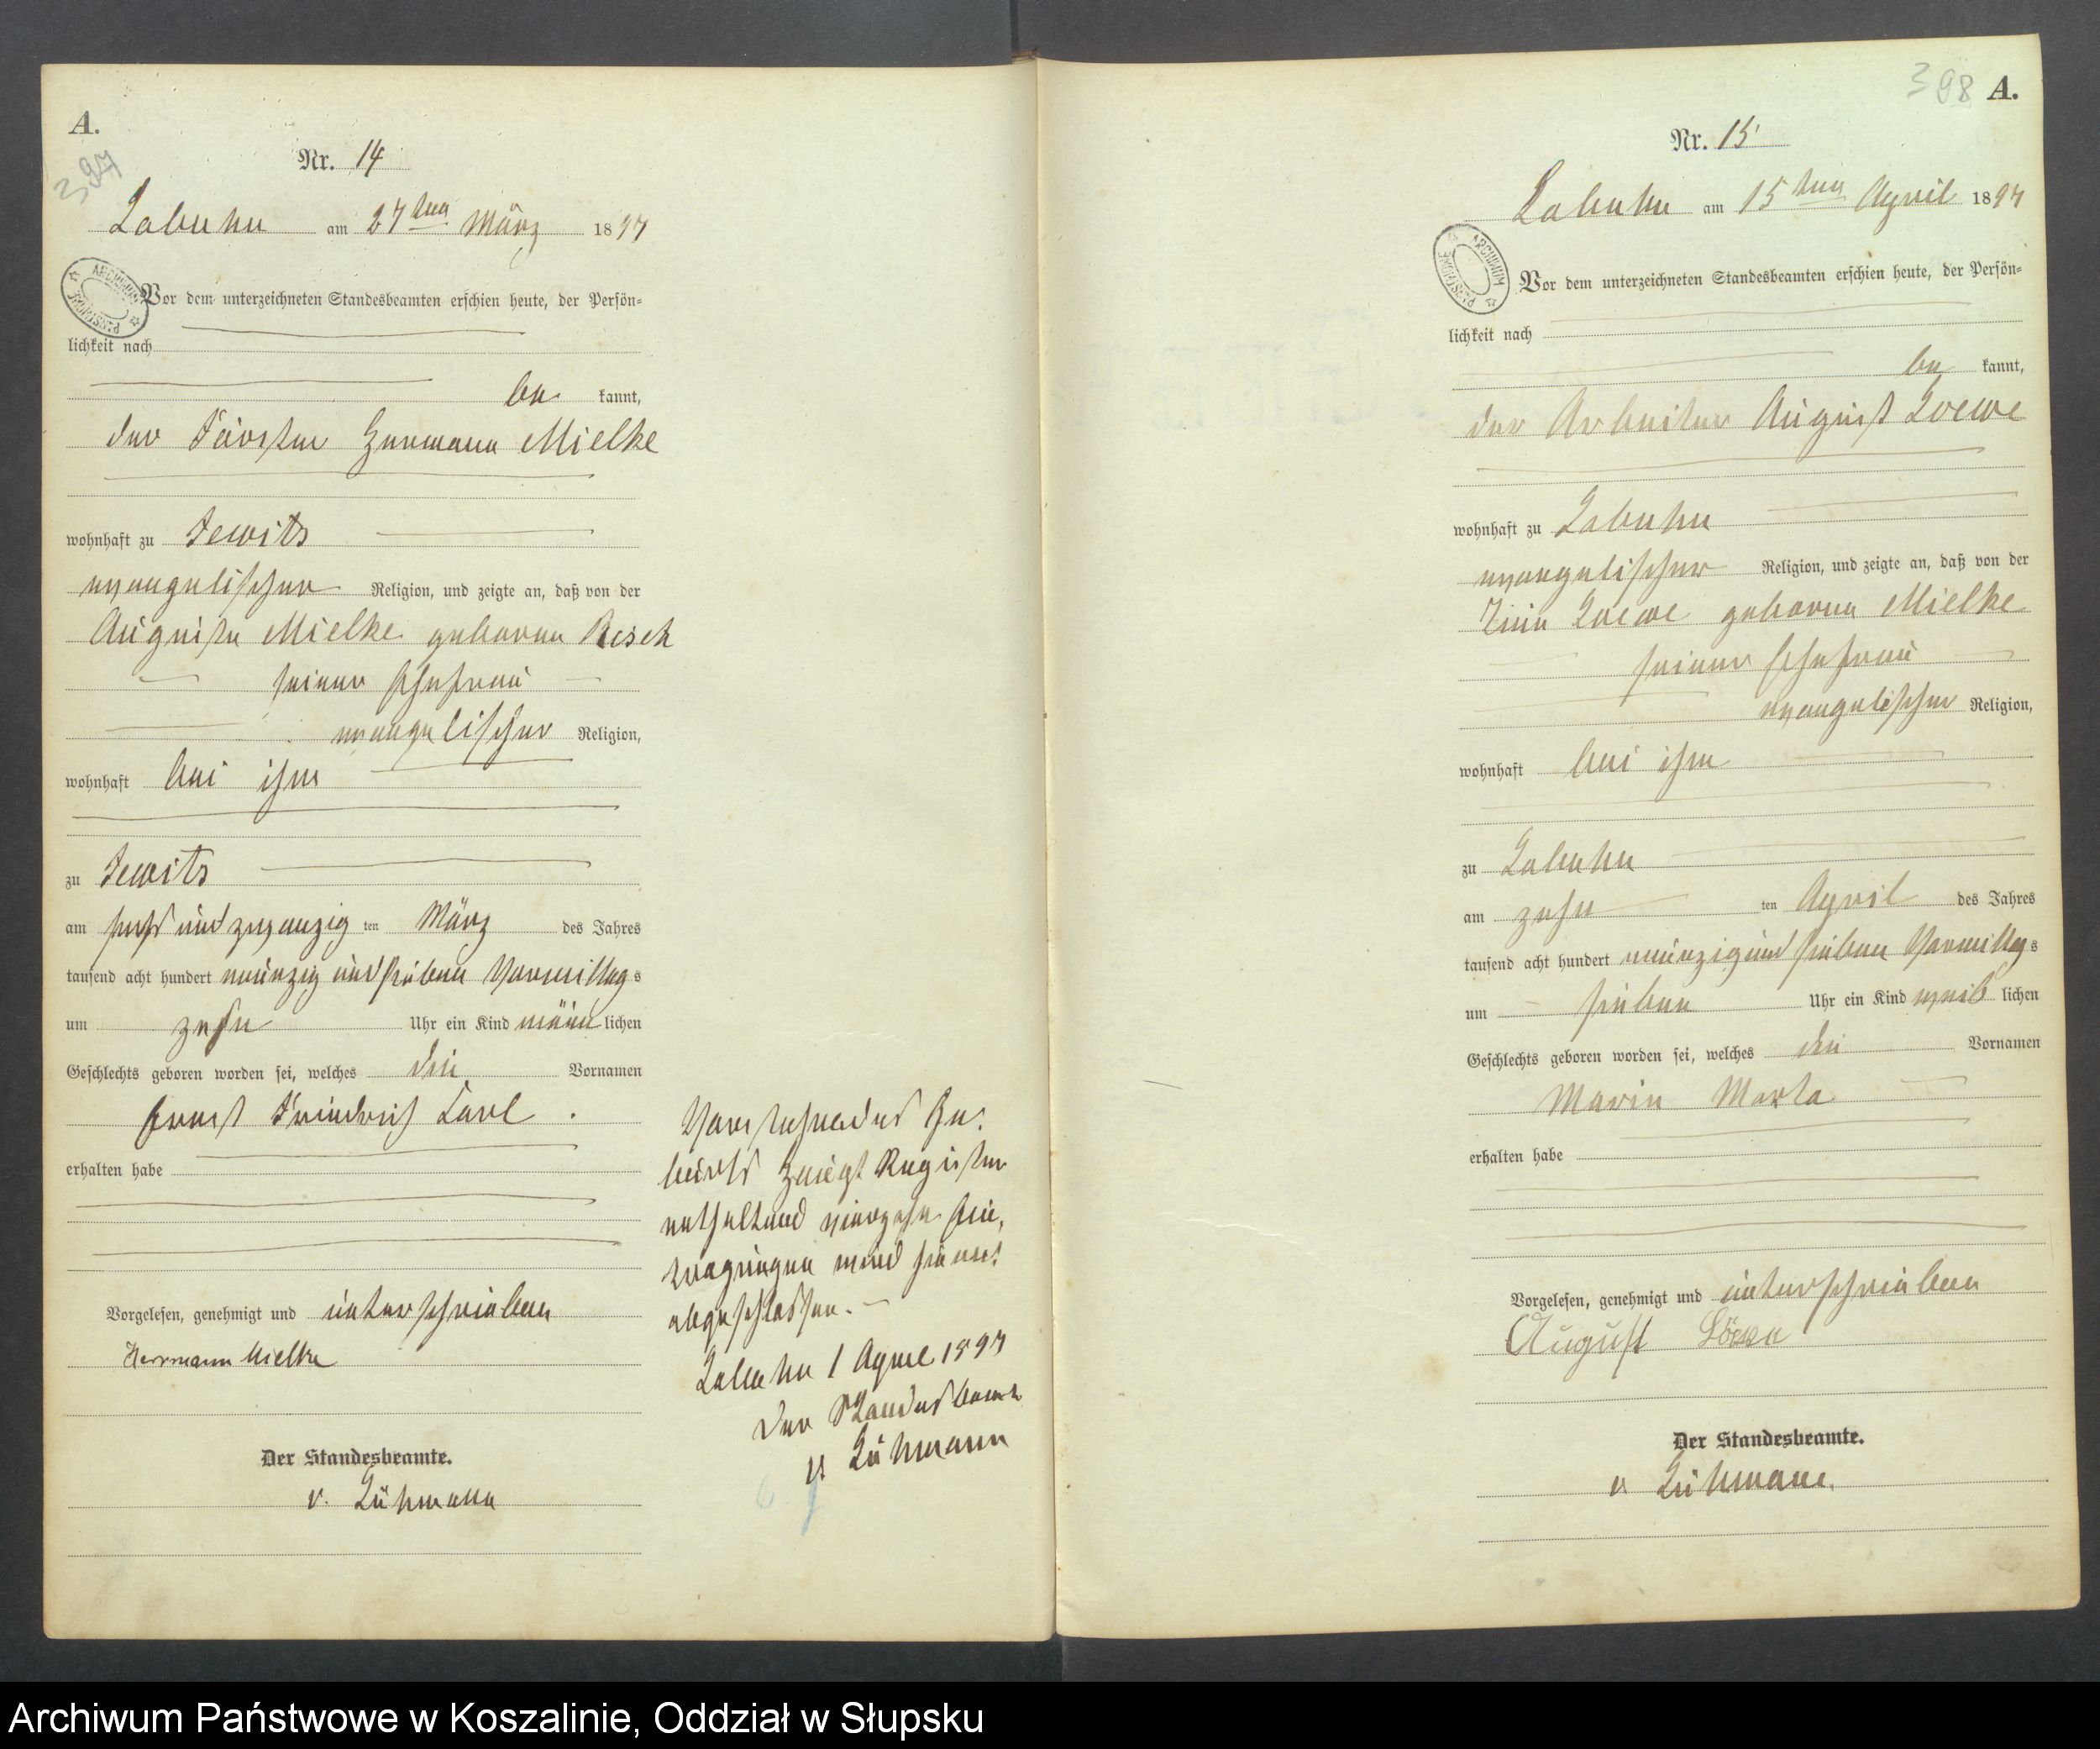 A.
397
Nr. 14
Labuhn am 27ten März 1897
ARCHIWUM PAŃSTWOWE
Vor dem unterzeichneten Standesbeamten erschien heute, der Persön=
lichkeit nach
be kannt,
der Förster Hermann Mielke
wohnhaft zu Jewitz
evangelischer Religion, und zeigte an, daß von der
Auguste Mielke geborene Resech
seiner Ehefrau
evangelischer Religion,
wohnhaft bei ihm
zu Jewitz
am sechs und zwanzig ten März des Jahres
tausend acht hundert neunzig und sieben Vormittag s
um zehn Uhr ein Kind männ lichen
Geschlechts geboren worden sei, welches die Vornamen
Ernst Friedrich Carl .
erhalten habe
Vorgelesen, genehmigt und unterschrieben
Herrmann Mielke
Der Standesbeamte.
v. Lühmann
Vorstehendes Ge=
burts Haupt Register
enthaltend vierzehn Ein=
tragungen wird hiermit
abgeschlossen. –
Labuhn 1 April 1897
Der Standesbeamte
v. Lühmann
398 A.
Nr. 15
Labuhn am 15ten April 1897
ARCHIWUM PAŃSTWOWE
Vor dem unterzeichneten Standesbeamten erschien heute, der Persön=
lichkeit nach
be kannt,
der Arbeiter August Loewe
wohnhaft zu Labuhn
evangelischer Religion, und zeigte an, daß von der
Loewe geborene Mielke
seiner Ehefrau
evangelischer Religion,
wohnhaft bei ihm
zu Labuhn
am zehn ten April des Jahres
tausend acht hundert neunzig und sieben Vormittag s
um sieben Uhr ein Kind weib lichen
Geschlechts geboren worden sei, welches die Vornamen
Marie Marta
erhalten habe
Vorgelesen, genehmigt und unterschrieben
August Löwe
Der Standesbeamte.
v. Lühmann
Archiwum Państwowe w Koszalinie, Oddział w Słupsku